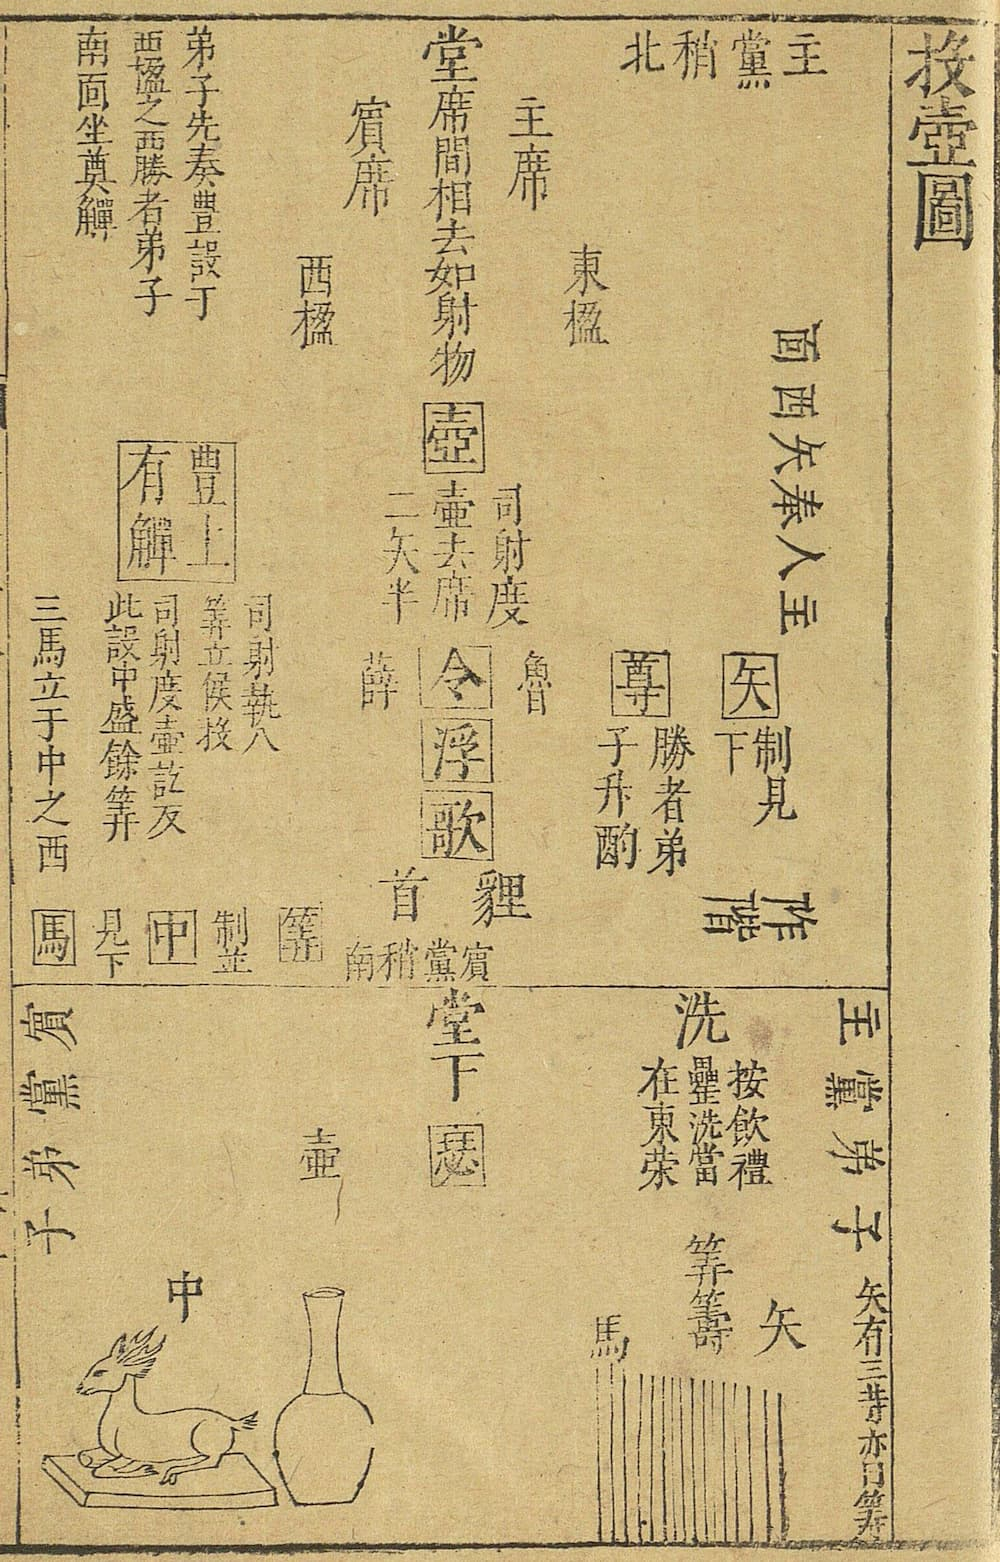 投壺圖
主黨稍北
主人奉矢西面
矢
制見
下
阼階
東楹
尊
勝者弟
子升酌
主席
堂席間相去如射物
壺
司射度
壺去席
二矢半
魯
令
薛
浮
歌
貍首
賓黨稍南
賓席
西楹
弟子先奏豊設于
西楹之西勝者弟子
南面坐奠觶
豊上
有觶
司射執八
筭立候投
司射度壺訖反
此設中盛餘筭
三馬立于中之西
筭
制並
中
見下
馬
主黨弟子
洗
按飲禮
罍洗當
在東荣
堂下
瑟
賓黨弟子
矢有三昔亦曰筭
矢
筭籌
馬
壺
中